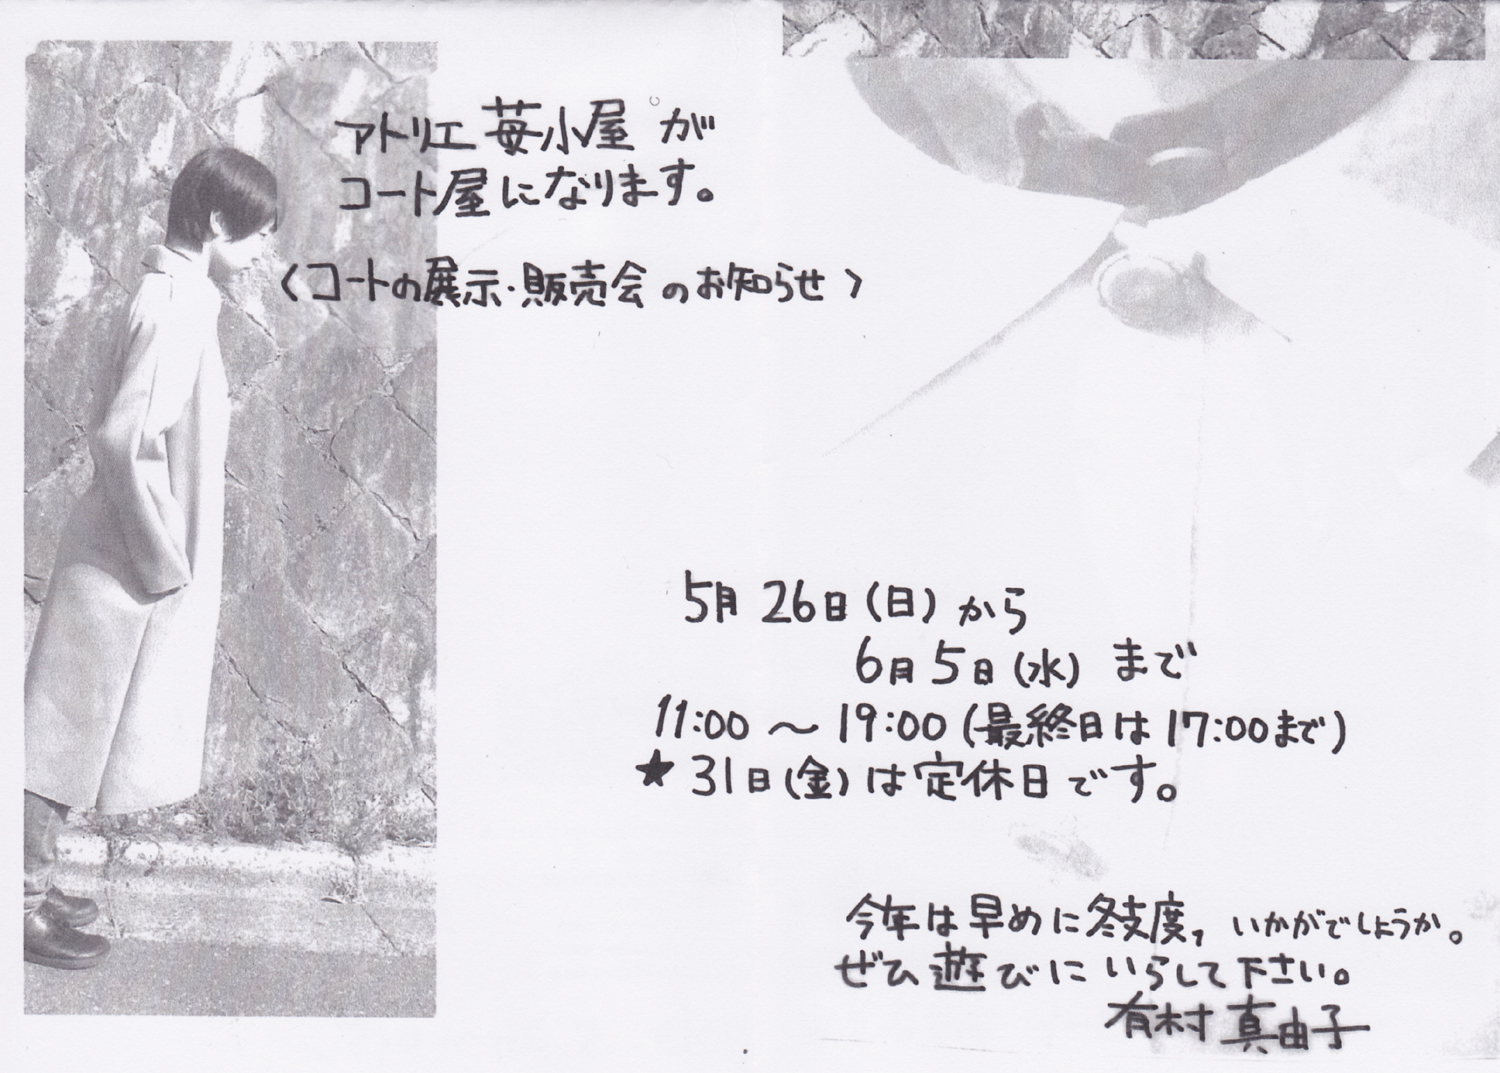 アトリエ 苺小屋 が
コート屋になります。
〈コートの展示・販売会のお知らせ〉
5月 26日(日)から
6月5日(水) まで
11:00 〜 19:00 (最終日は17:00まで)
★ 31日(金)は定休日です。
今年は早めに冬支度, いかがでしょうか。
ぜひ遊びにいらして下さい。
有村 真由子